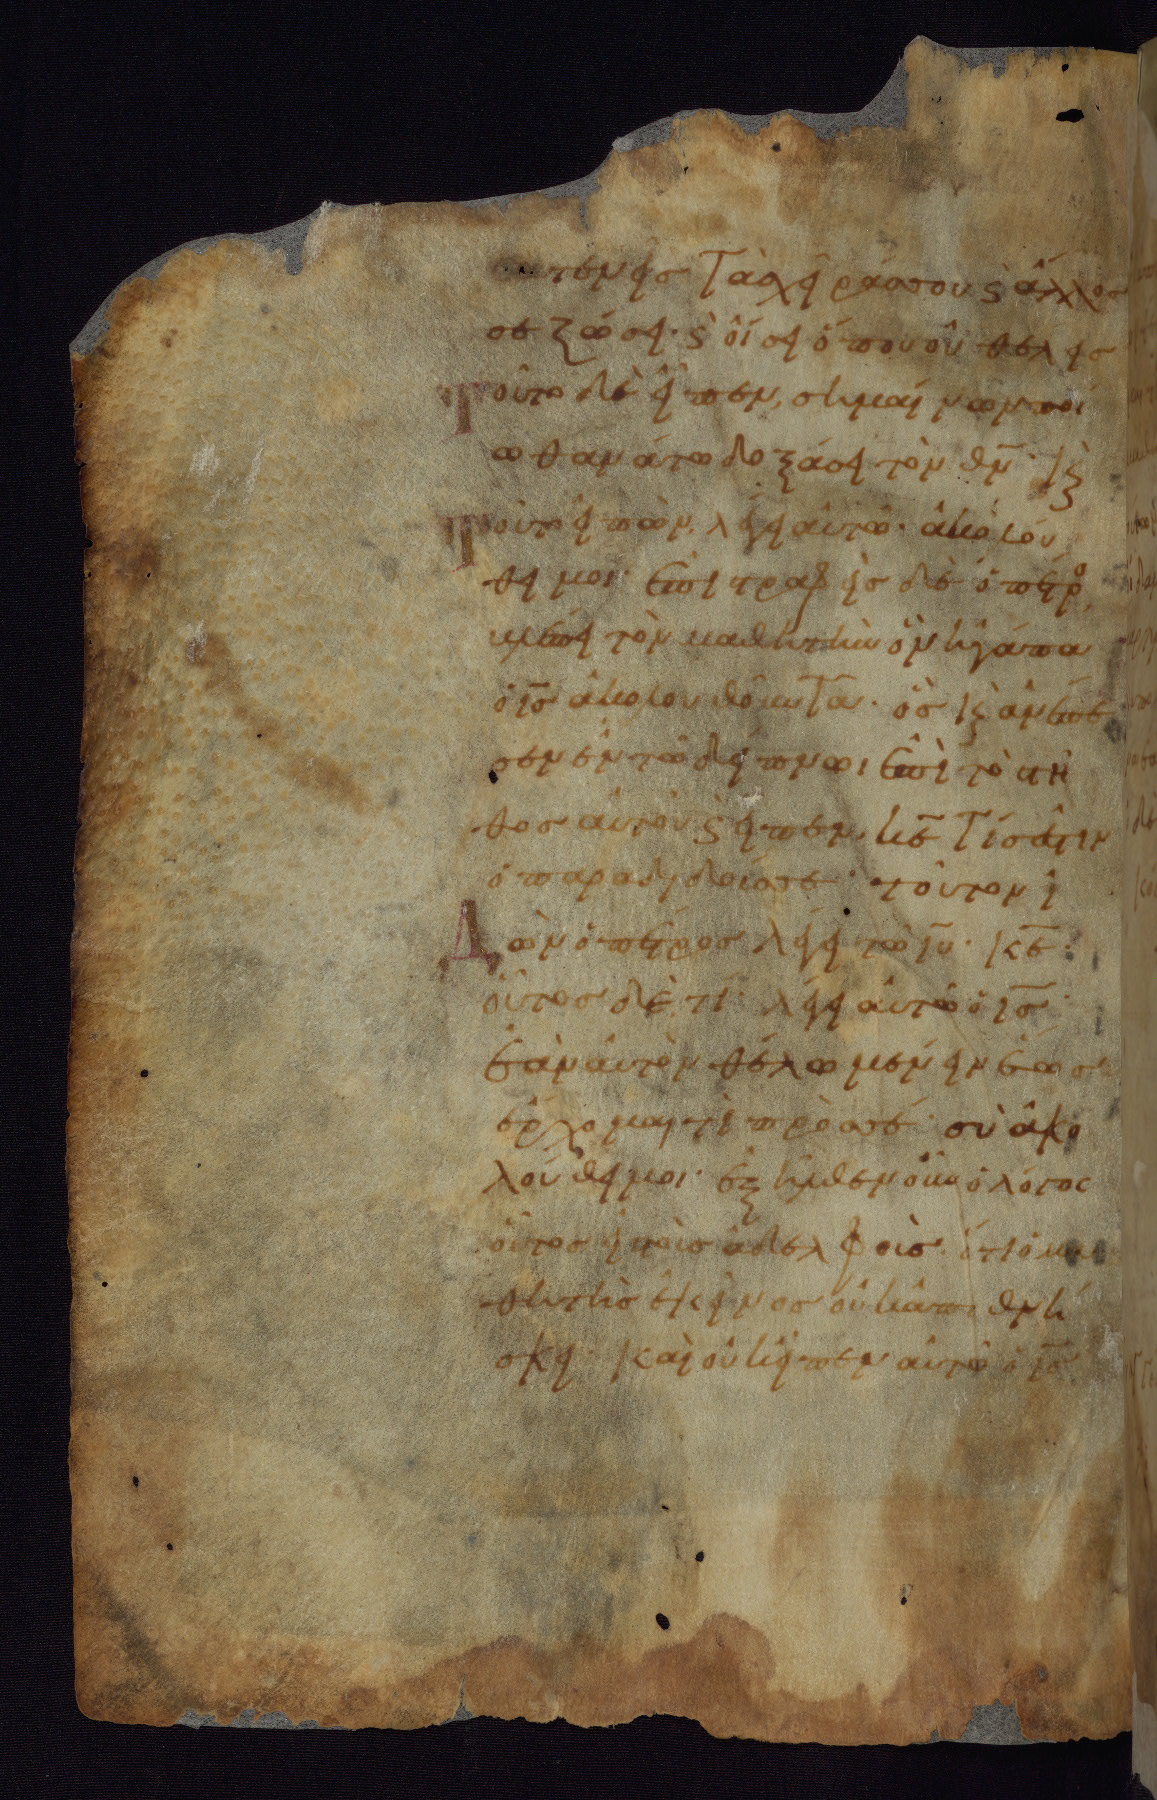 τενεῖσ τὰσ χεῖράσ σου ϛ ἄλλος
σε ζώσει· ϛ οἴσει ὅπου οὐ θέλεισ
Τοῦτο δὲ εἶπεν, σημαίνων ποί
ω θανάτω δοξάσει τὸν θν̅· κ̀
Τοῦτο εἰπὼν, λέγει αὐτῶ· ἀκολού
θει μοι· ἐπιστραφεὶσ δὲ ὁ πέτρο
βλέπει τὸν μαθητὴν ὃν ἠγάπα
ὁ ισ̅ ἀκολουθοῦντα· ὃσ κ̀ ἀνέπε
σεν ἐν τῶ δείπνωι ἐπὶ τὸ στῆ
θοσ αὐτοῦ ϛ εἶπεν, κε̅ τίσ ἐστιν
ὁ παραδιδούσσε· τοῦτον ἰ
Δὼν ὁ πέτροσ λέγει τῶ ιυ̅· κε̅·
οὗτοσ δὲ τί· λέγει αὐτῶ ὁ ισ̅·
ἐὰν αὐτὸν θέλω μένειν ἕωσ
ἔρχομαι τί πρὸσσέ· σὺ ἀκο
λούθει μοι· ἐξῆλθεν οὖν ὁ λόγος
οὗτοσ εἰ τοῖσ ἀδελφοῖσ· ὅτι ὁ μα
θητὴσ ἐκεῖνοσ οὐκ ἀποθνή
σκει· καὶ οὐκ εἶπεν αὐτῶ ὁ ισ̅